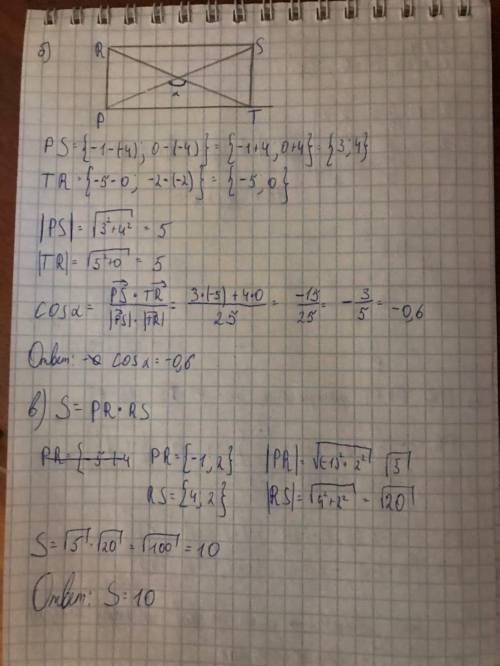 б)
R S
α
P T
PS = {-1-(-4); 0-(-4)} = {-1+4, 0+4} = {3; 4}
TR = {-5-0; -2-(-2)} = {-5, 0}
|PS| = √(3²+4²) = 5
|TR| = √(5²+0) = 5
cos α = (PS⃗ · TR⃗)/(|PS⃗| · |TR⃗|) = (3·(-5)+4·0)/25 = -15/25 = -3/5 = -0,6
Ответ: cos α = -0,6
в) S = PR · RS
PR = {-5+4 PR = {-1, 2} |PR| = √((-1)²+2²) √5
RS = {4, 2} |RS| = √(4²+2²) = √20
S = √5 · √20 = √100 = 10
Ответ: S = 10